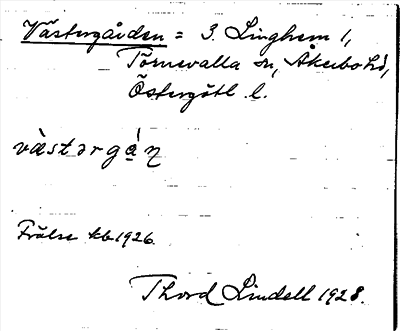 Västergården = 3. Linghem 1,
Törnevalla sn, Åkerbo hd,
Östergötl. l.
vä̀stərgá̱ɳ
Frälse kb 1926.
Thord Lindell 1928.